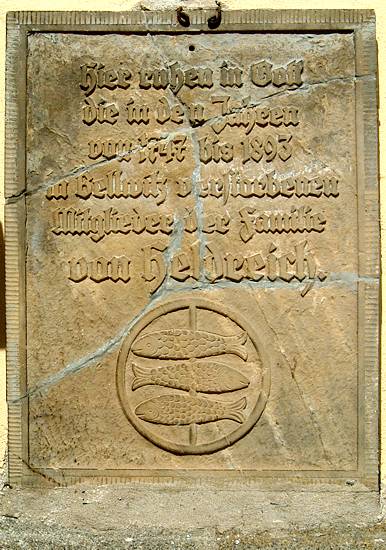 Hier ruhen in Gott
die in den Jahren
von 1747 bis 1893
in Bellwitz verstorbenen
Mitglieder der Familie
von Heldreich.